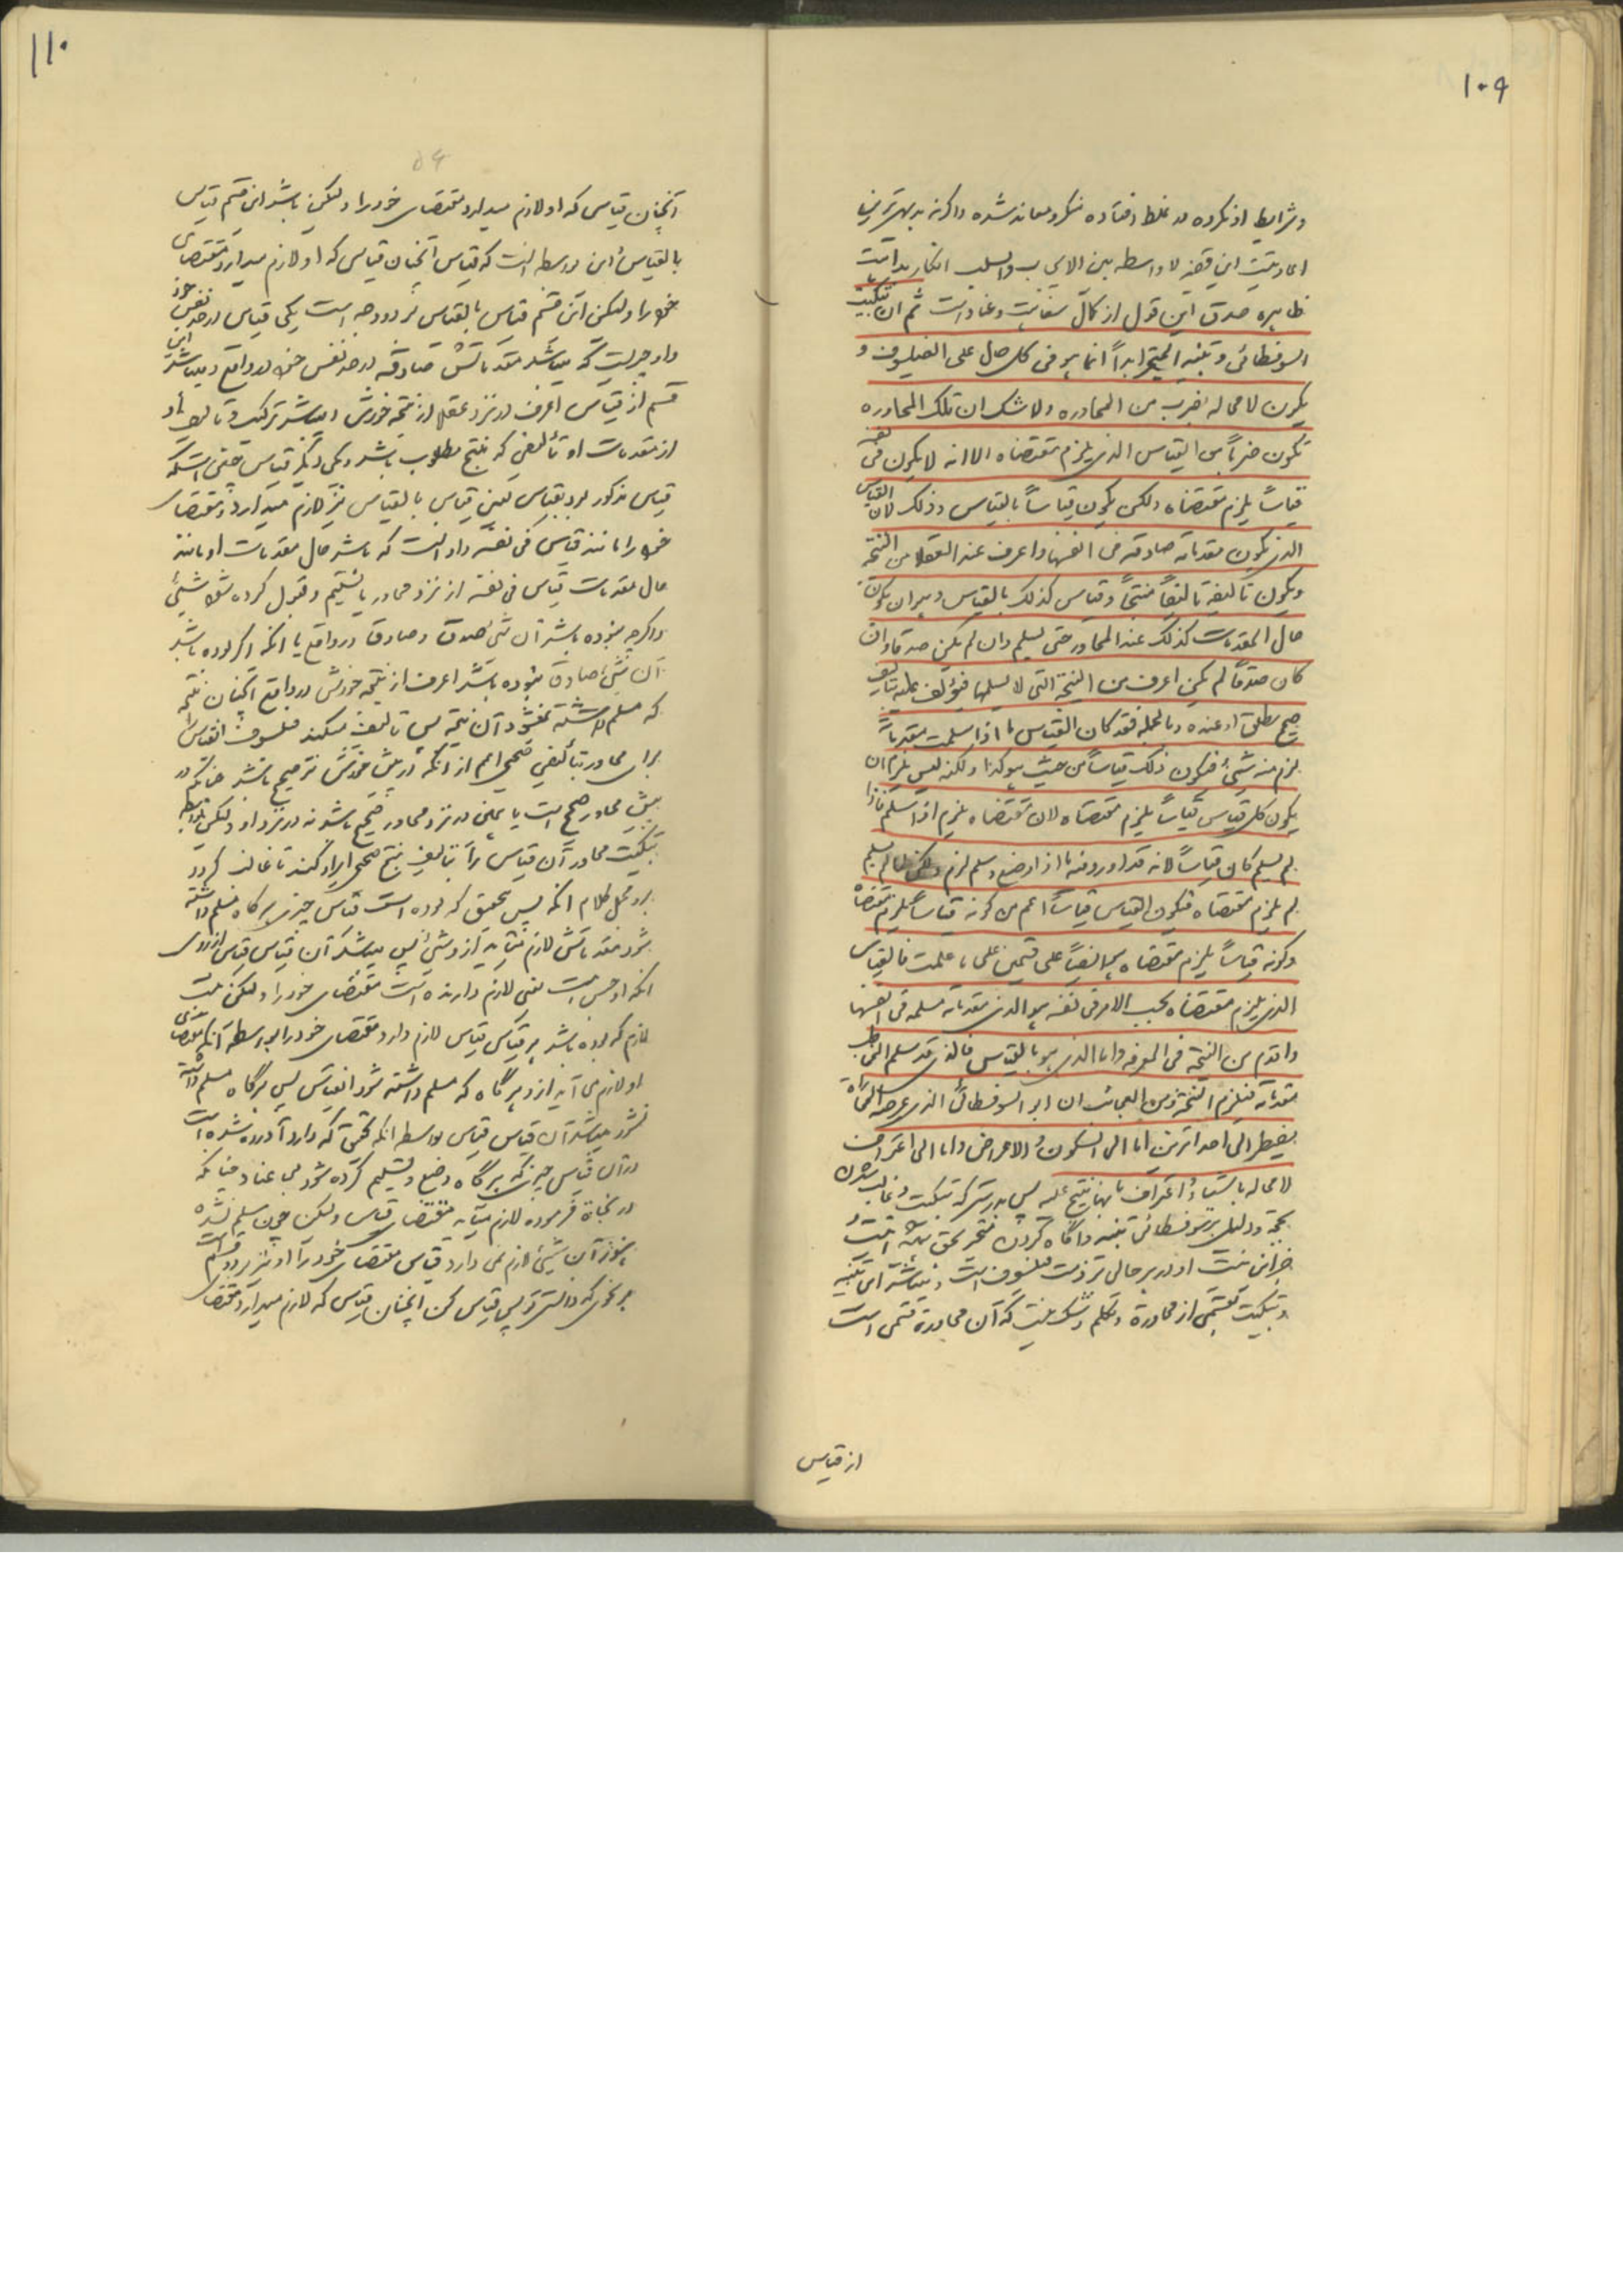 ۱۰۹
و شرایط او نکرده در غلط افتاده منکر و معاند شده و اگرنه بدیهی‌ترین
این قضیه لا واسطه بین الایجاب و السلب انکار بداهت
ظاهره صدق این قول از کمال سفاهت و عناد است ثم ان تبکیت
السوفسطائی و تنبیه المتحیر ابداً انما هو فی کل حال علی الفیلسوف و
یکون لا محاله بضرب من المحاوره و لا شک ان تلک المحاوره
تکون ضرباً من القیاس الذی یلزم مقتضاه الا انه لا یکون فی نفسه
قیاساً یلزم مقتضاه ولکن یکون قیاساً بالقیاس و ذلک لان القیاس
الذی تکون مقدماته صادقه فی انفسها و اعرف عند العقلا من النتیجه
و یکون تألیفه تألیفاً منتجاً و قیاس کذلک بالقیاس و هو ان یکون
حال المقدمات کذلک عند المحاور حتی یسلم و ان لم یکن صدقا و ان
کان صدقاً لم یکن اعرف من النتیجة التی لا یسلمها فیؤلف علیه بتألیف
صحیح مطلق او عنده و بالجمله فقد کان القیاس ما اذا سلمت مقدماته
لزم منه شیء فیکون ذلک قیاساً من حیث هو کذا ولکنه لیس یلزم ان
یکون کل قیاس قیاساً یلزم مقتضاه لان مقتضاه یلزم اذا سلم فاذا
لم یسلم کان قیاساً لانه قد اورد فیه ما اذا وضع و سلم لزم ولکن لما لم یسلم
لم یلزم مقتضاه فیکون القیاس قیاساً اعم من کونه قیاساً یلزم مقتضاه
و کونه قیاساً یلزم مقتضاه هو ایضاً علی قسمین علی ما علمت فالقیاس
الذی یلزم مقتضاه بحسب الامر فی نفسه هو الذی مقدماته مسلمه فی انفسها
و اقدم من النتیجه فی المعرفه و اما الذی هو بالقیاس فالذی قد سلم المخاطب
مقدماته فیلزم النتیجة و من العجائب ان السوفسطائی الذی غرضه المماراة
یضطر الی احد امرین اما الی السکوت و الاعراض و اما الی اعتراف
لا محاله باشیاء و اعتراف بانها نتیج علیه پس بدرستی که تبکیت و غالب شدن
بحجه و دلیل بر سوفسطائی و تنبیه و آگاه کردن متحیر بحق
جز این نیست او در هر حالی بر ذمت فیلسوف است و میباشد این تنبیه
و تبکیت بقسمی از محاورة و تکلم و شک نیست که آن محاورة قسمی است
از قیاس
۱۱۰
۵۶
آنچنان قیاس که او لازم میدارد مقتضای خود را ولیکن باشد این قسم قیاس
بالقیاس و این بواسطه انست که قیاس آنچنان قیاسی که او لازم میدارد مقتضای
خود را ولیکن این قسم قیاس بالقیاس بر دو وجه است یکی قیاس در حد نفس خود
و او چیزیست که میباشد مقدماتش صادقه در حد نفس خود در واقع و میباشد این
قسم از قیاس اعرف در نزد عقلا از نتیجه خودش و میباشد ترکیب و تألیف او
از مقدمات او تألیفی که منتج مطلوب باشد و یکی دیگر قیاس چنین است که
قیاس مذکور بود بقیاس یعنی قیاس بالقیاس نیز لازم میدارد مقتضای
خود را مانند قیاس فی نفسه و او انست که باشد حال مقدمات او مانند
حال مقدمات قیاس فی نفسه از نزد محاور با تسلیم و قبول کرده شود شیئی
و اگرچه نبوده باشد آن شئ صدق و صادق در واقع یا انکه اگر بوده باشد
آن شئ صادق نبوده باشد اعرف از نتیجه خودش در واقع آنچنان نتیجه
که مسلم داشته نمیشود آن نتیجه پس تألیف میکند فیلسوف انقیاس را
برای محاور بتألیفی صحیحی اعم از انکه در پیش خودش نیز صحیح باشد چنانکه در
پیش محاور صحیح است یا همین در نزد محاور صحیح باشد نه در نزد او ولیکن بواسطه
تبکیت محاور آن قیاس را بتألیف منتج صحیحی ایراد کند تا غالب گردد
بر او مجمل کلام انکه پس بتحقیق که بوده است قیاس چیزی هرگاه مسلم داشته
شود مقدماتش لازم میآید از او شیء پس میباشد آن قیاس قیاس از روی
انکه او چنین است یعنی لازم دارنده است مقتضای خود را ولیکن نیست
لازم که بوده باشد هر قیاس قیاس لازم دارد مقتضای خود را بواسطه آنکه مقتضای
او لازم می آید از او هرگاه که مسلم داشته شود انقیاس پس هرگاه مسلم داشته
نشود میباشد آن قیاس قیاس بواسطه انکه بتحقیق که وارد آورده شده است
در آن قیاس چیزیکه هرگاه وضع و تسلیم کرده شود بی عناد چنانکه
در نجاة فرموده لازم میآید مقتضای قیاس ولیکن چون مسلم نشده
هنوز آن شیئ لازم نمی دارد قیاس مقتضای خود را او نیز بر دو قسم است
بر نحوی که دانستی پس قیاس لکن آنچنان قیاسی که لازم میدارد مقتضای